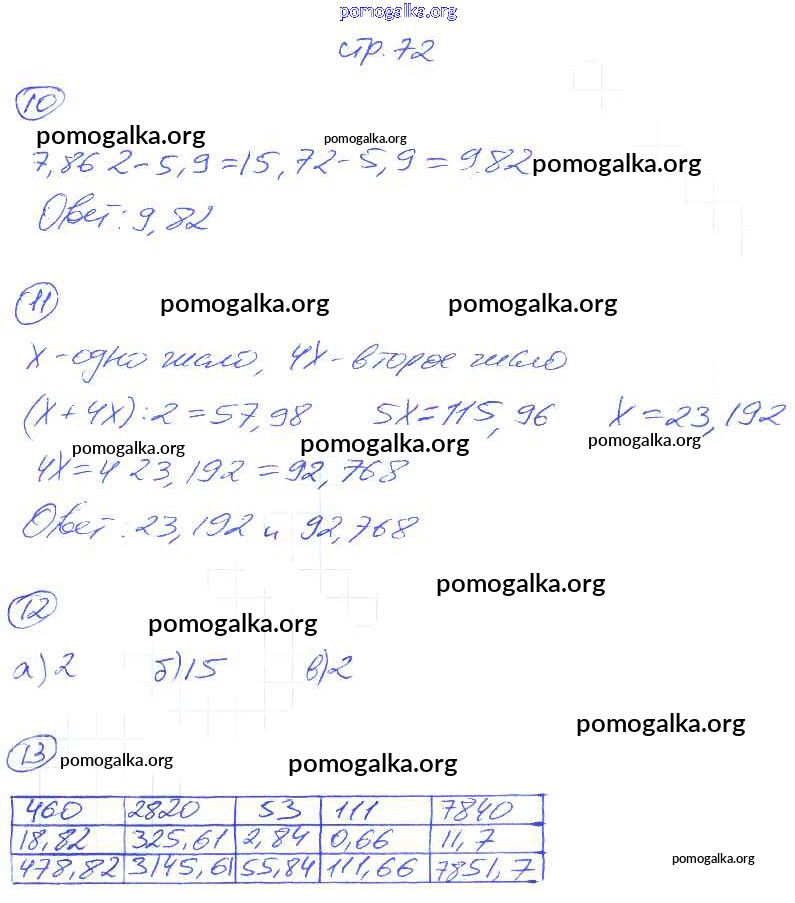 pomogalka.org
стр. 72
10
pomogalka.org pomogalka.org
7,86 2-5,9=15,72-5,9=9,82 pomogalka.org
Ответ: 9,82
11 pomogalka.org pomogalka.org
х-одно число, 4х-второе число
(х+4х):2=57,98 5х=115,96 х=23,192
pomogalka.org pomogalka.org pomogalka.org
4х=4 23,192=92,768
Ответ: 23,192 и 92,768
pomogalka.org
12 pomogalka.org
а)2 б)15 в)2
pomogalka.org
13 pomogalka.org pomogalka.org
460 2820 53 111 7840
18,82 325,61 2,84 0,66 11,7
478,82 3145,61 55,84 111,66 7851,7
pomogalka.org